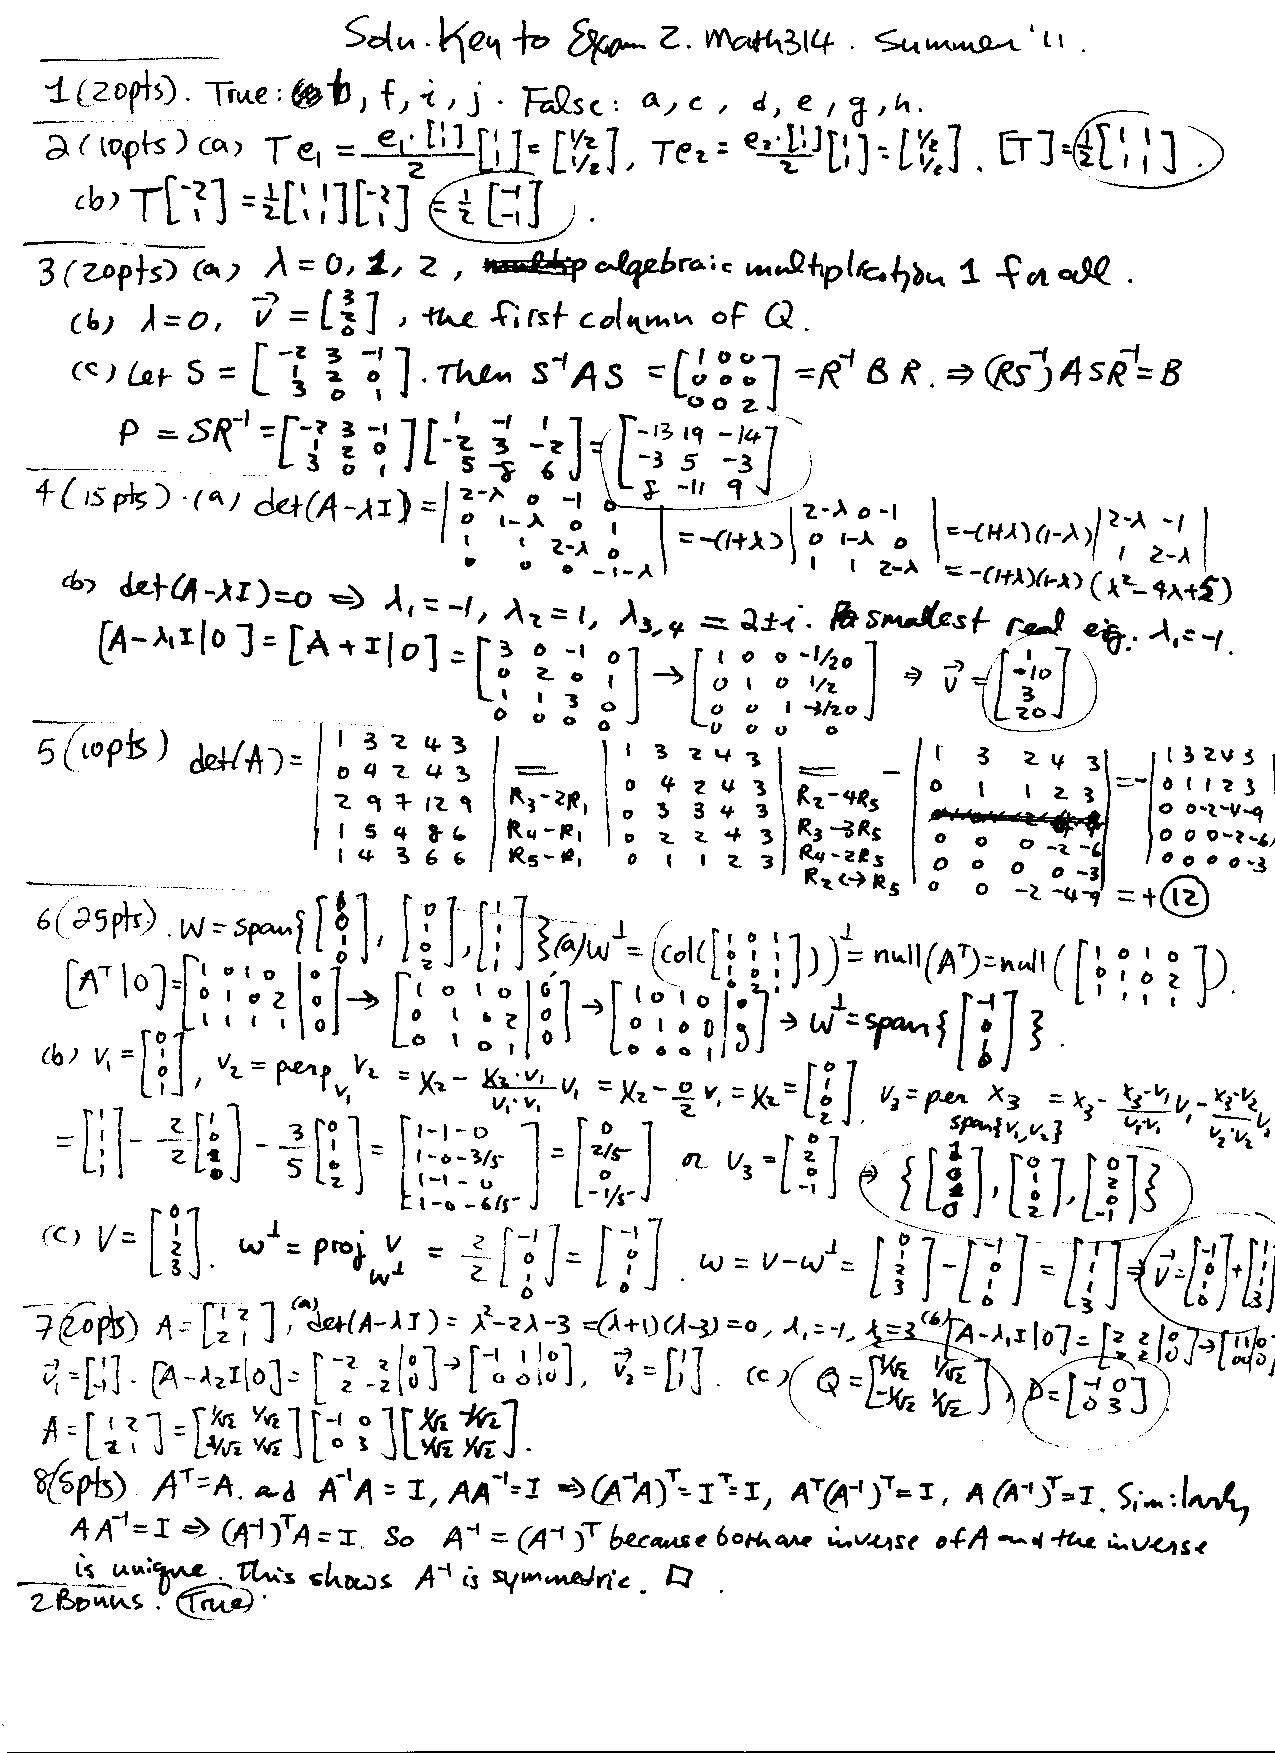 Soln. Key to Exam 2. Math314. Summer '11.
1(20pts). True: b, f, i, j. False: a, c, d, e, g, h.
2(10pts) (a) Te₁ = (e₁·[1;1])/2 [1;1] = [1/2;1/2], Te₂ = (e₂·[1;1])/2 [1;1] = [1/2;1/2]. [T] = 1/2[1 1;1 1].
(b) T[-2;1] = 1/2[1 1;1 1][-2;1] = 1/2[-1;-1].
3(20pts) (a) λ=0, 1, 2, algebraic multiplication 1 for all.
(b) λ=0, v⃗ = [3;2;0], the first column of Q.
(c) Let S = [-2 3 -1;1 2 0;3 0 1]. Then S⁻¹AS = [1 0 0;0 0 0;0 0 2] = R⁻¹BR. ⇒ (RS⁻¹)ASR⁻¹=B
P = SR⁻¹ = [-2 3 -1;1 2 0;3 0 1][1 -1 1;-2 3 -2;5 -8 6] = [-13 19 -14;-3 5 -3;8 -11 9]
4(15pts). (a) det(A-λI) = |2-λ 0 -1 0;0 1-λ 0 1;1 1 2-λ 0;0 0 0 -1-λ| = -(1+λ)|2-λ 0 -1;0 1-λ 0;1 1 2-λ| = -(1+λ)(1-λ)|2-λ -1;1 2-λ|
= -(1+λ)(1-λ)(λ²-4λ+5)
(b) det(A-λI)=0 ⇒ λ₁=-1, λ₂=1, λ₃,₄ = 2±i. smallest real eig. λ₁=-1.
[A-λ₁I|0] = [A+I|0] = [3 0 -1 0;0 2 0 1;1 1 3 0;0 0 0 0] → [1 0 0 -1/20;0 1 0 1/2;0 0 1 -3/20;0 0 0 0] ⇒ v⃗ = [1;-10;3;20]
5(10pts) det(A) = |1 3 2 4 3;0 4 2 4 3;2 9 7 12 9;1 5 4 8 6;1 4 3 6 6| = R₃-2R₁ R₄-R₁ R₅-R₁ |1 3 2 4 3;0 4 2 4 3;0 3 3 4 3;0 2 2 4 3;0 1 1 2 3| = R₂-4R₅ R₃-3R₅ R₄-2R₅ R₂↔R₅ -|1 3 2 4 3;0 1 1 2 3;0 0 0 -2 -6;0 0 0 0 -3;0 0 -2 -4 -9| = -|1 3 2 4 3;0 1 1 2 3;0 0 -2 -4 -9;0 0 0 -2 -6;0 0 0 0 -3|
= +12
6(25pts). W = span{[1;0;1;0], [0;1;0;2], [1;1;1;1]} (a) W⊥ = (col([1 0 1;0 1 1;1 0 1;0 2 1]))⊥ = null(Aᵀ) = null([1 0 1 0;0 1 0 2;1 1 1 1]).
[Aᵀ|0] = [1 0 1 0|0;0 1 0 2|0;1 1 1 1|0] → [1 0 1 0|0;0 1 0 2|0;0 1 0 1|0] → [1 0 1 0|0;0 1 0 0|0;0 0 0 1|0] → W⊥ = span{[-1;0;1;0]}.
(b) V₁ = [0;1], V₂ = perp_V₁ V₂ = X₂ - (X₂·V₁)/(V₁·V₁) V₁ = X₂ - 0/2 V₁ = X₂ = [0;1;0;2]. V₃ = per span{V₁,V₂} X₃ = X₃ - (X₃·V₁)/(V₁·V₁) V₁ - (X₃·V₂)/(V₂·V₂) V
= [1;1;1;1] - 2/2 [1;0;1;0] - 3/5 [0;1;0;2] = [1-1-0;1-0-3/5;1-1-0;1-0-6/5] = [0;2/5;0;-1/5] or V₃ = [0;2;0;-1] ⇒ {[1;0;1;0], [0;1;0;2], [0;2;0;-1]}
(c) V = [0;1;2;3]. w⊥ = proj_W⊥ V = 2/2 [-1;0;1;0] = [-1;0;1;0]. w = V - w⊥ = [0;1;2;3] - [-1;0;1;0] = [1;1;1;3] ⇒ V⃗ = [-1;0;1;0] + [1;1;1;3]
7(20pts) A = [1 2;2 1], (a) det(A-λI) = λ²-2λ-3 = (λ+1)(λ-3) = 0, λ₁=-1, λ₂=3 (b) [A-λ₁I|0] = [2 2|0;2 2|0] → [1 1|0;0 0|0]
v⃗₁ = [1;-1]. [A-λ₂I|0] = [-2 2|0;2 -2|0] → [-1 1|0;0 0|0], v⃗₂ = [1;1]. (c) Q = [1/√2 1/√2;-1/√2 1/√2], D = [-1 0;0 3].
A = [1 2;2 1] = [1/√2 1/√2;-1/√2 1/√2][-1 0;0 3][1/√2 -1/√2;1/√2 1/√2].
8(5pts) Aᵀ=A. and A⁻¹A = I, AA⁻¹=I ⇒ (A⁻¹A)ᵀ=Iᵀ=I, Aᵀ(A⁻¹)ᵀ=I, A(A⁻¹)ᵀ=I. Similarly
AA⁻¹=I ⇒ (A⁻¹)ᵀA=I. So A⁻¹ = (A⁻¹)ᵀ because both are inverse of A and the inverse
is unique. This shows A⁻¹ is symmetric. □.
2 Bonus. True.